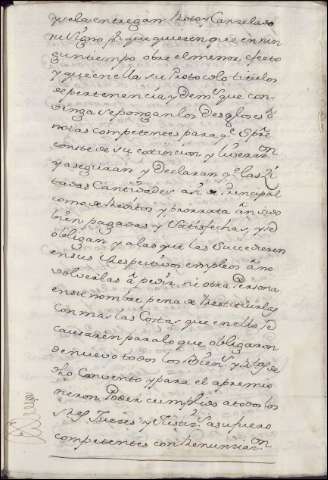 que la entregan Rotos Cancelados
ni signo pr. que quieren que en nin
gun tiempo obre el menor efecto
y que en ella su Protocolo titulos
de pertenencia y demas que con
benga se pongan los desgloses y
notas competentes para que siempre
conste de su extincion y liberacion
y aseguran y Declaran que las
tadas Cantidades an Principal
como de Reditos y prorrata an sido
bien pagadas y satisfechas, y se
obligan y a las que les succedieren
en sus respectivos empleos a no
volverlas a pedir ni otra Persona
en su nombre pena de Restituirlas
con mas las Costas que en ello se
causaren para lo que obligaron
de nuevo todos los Bienes y
dho Convento y para el apremio
dieron Poder cumplido a todos los
Sres Jueces y Justicias de su fuero
competentes con Renunciacion